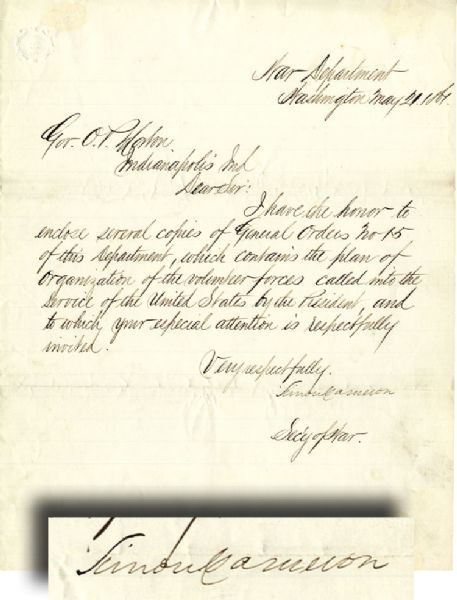 War Department
Washington May 21 1861.
Gov. O. P. Morton
Indianapolis Ind
Dear Sir:
I have the honor to
enclose several copies of General Orders No 15
of this Department, which contains the plan of
organization of the volunteer forces called into the
Service of the United States by the President, and
to which your especial attention is respectfully
invited.
Very respectfully.
Simon Cameron
Secy of War.
Simon Cameron